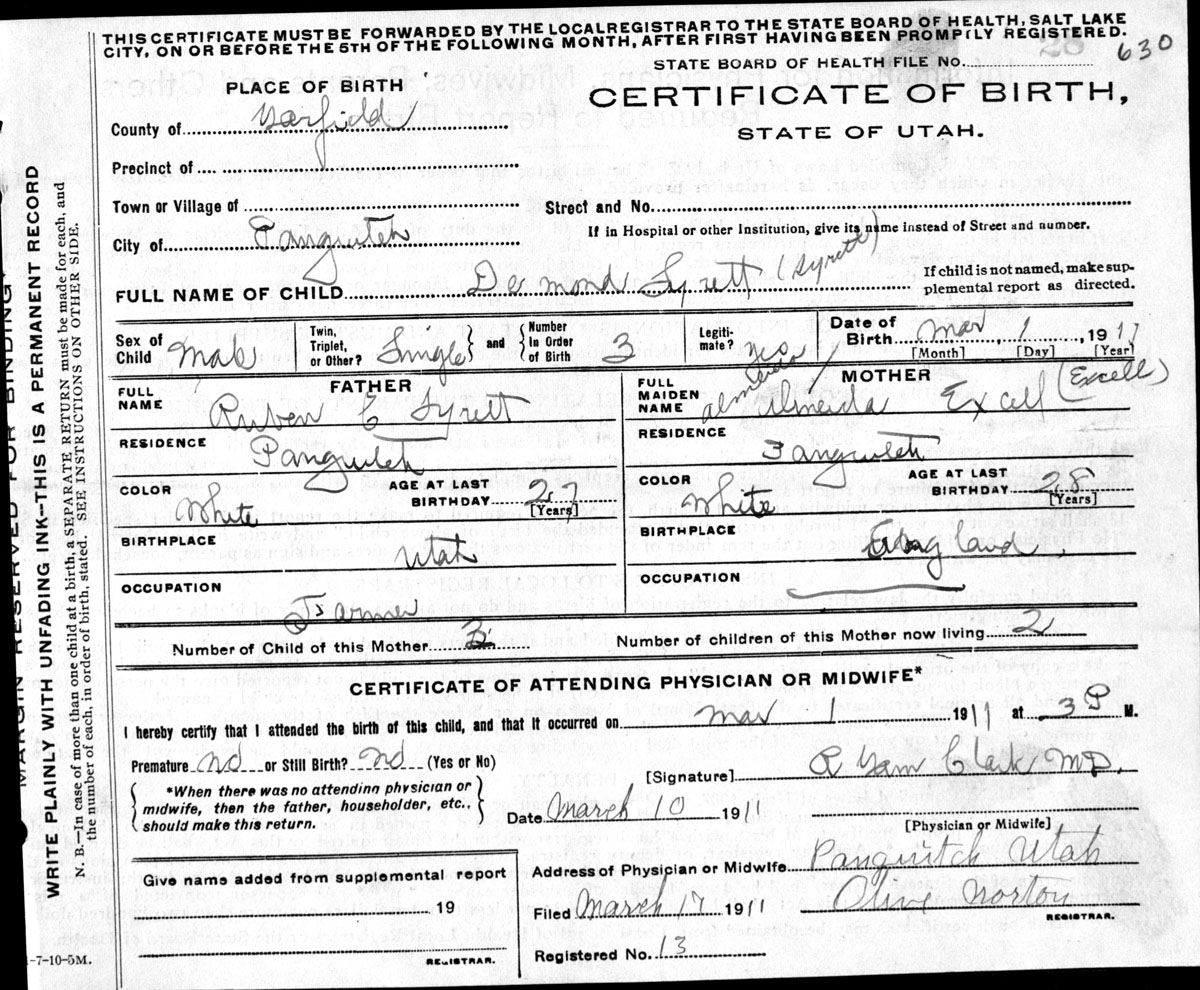 THIS CERTIFICATE MUST BE FORWARDED BY THE LOCALREGISTRAR TO THE STATE BOARD OF HEALTH, SALT LAKE
CITY, ON OR BEFORE THE 5TH OF THE FOLLOWING MONTH, AFTER FIRST HAVING BEEN PROMPTLY REGISTERED.
STATE BOARD OF HEALTH FILE NO. 630
PLACE OF BIRTH
CERTIFICATE OF BIRTH,
STATE OF UTAH.
County of Garfield
Precinct of
Town or Village of
Street and No.
City of Panguitch
If in Hospital or other Institution, give its name instead of Street and number.
FULL NAME OF CHILD De mond Syrett (Syrett)
If child is not named, make sup-
plemental report as directed.
Sex of Child Male
Twin, Triplet, or Other? Single
and
Number In Order of Birth 3
Legiti-mate? yes
Date of Birth Mar 1, 1911
[Month] [Day] [Year]
FATHER
FULL NAME Ruben C Syrett
RESIDENCE Panguitch
COLOR White
AGE AT LAST BIRTHDAY 27
[Years]
BIRTHPLACE Utah
OCCUPATION Farmer
MOTHER
FULL MAIDEN NAME Almeida Excell (Excell)
RESIDENCE Panguitch
COLOR White
AGE AT LAST BIRTHDAY 28
[Years]
BIRTHPLACE England
OCCUPATION
Number of Child of this Mother 3
Number of children of this Mother now living 2
CERTIFICATE OF ATTENDING PHYSICIAN OR MIDWIFE*
I hereby certify that I attended the birth of this child, and that it occurred on Mar 1 1911 at 3 P M.
Premature No or Still Birth? No (Yes or No)
[Signature] R Garn Clark, MD.
*When there was no attending physician or
midwife, then the father, householder, etc.,
should make this return.
Date March 10 1911
[Physician or Midwife]
Give name added from supplemental report
19
REGISTRAR.
Address of Physician or Midwife Panguitch Utah
Filed March 17 1911 Olive Norton
REGISTRAR.
Registered No. 13
-7-10-5M.
MARGIN RESERVED FOR BINDING.
WRITE PLAINLY WITH UNFADING INK—THIS IS A PERMANENT RECORD
N. B.—In case of more than one child at a birth, a SEPARATE RETURN must be made for each, and
the number of each, in order of birth, stated. SEE INSTRUCTIONS ON OTHER SIDE.